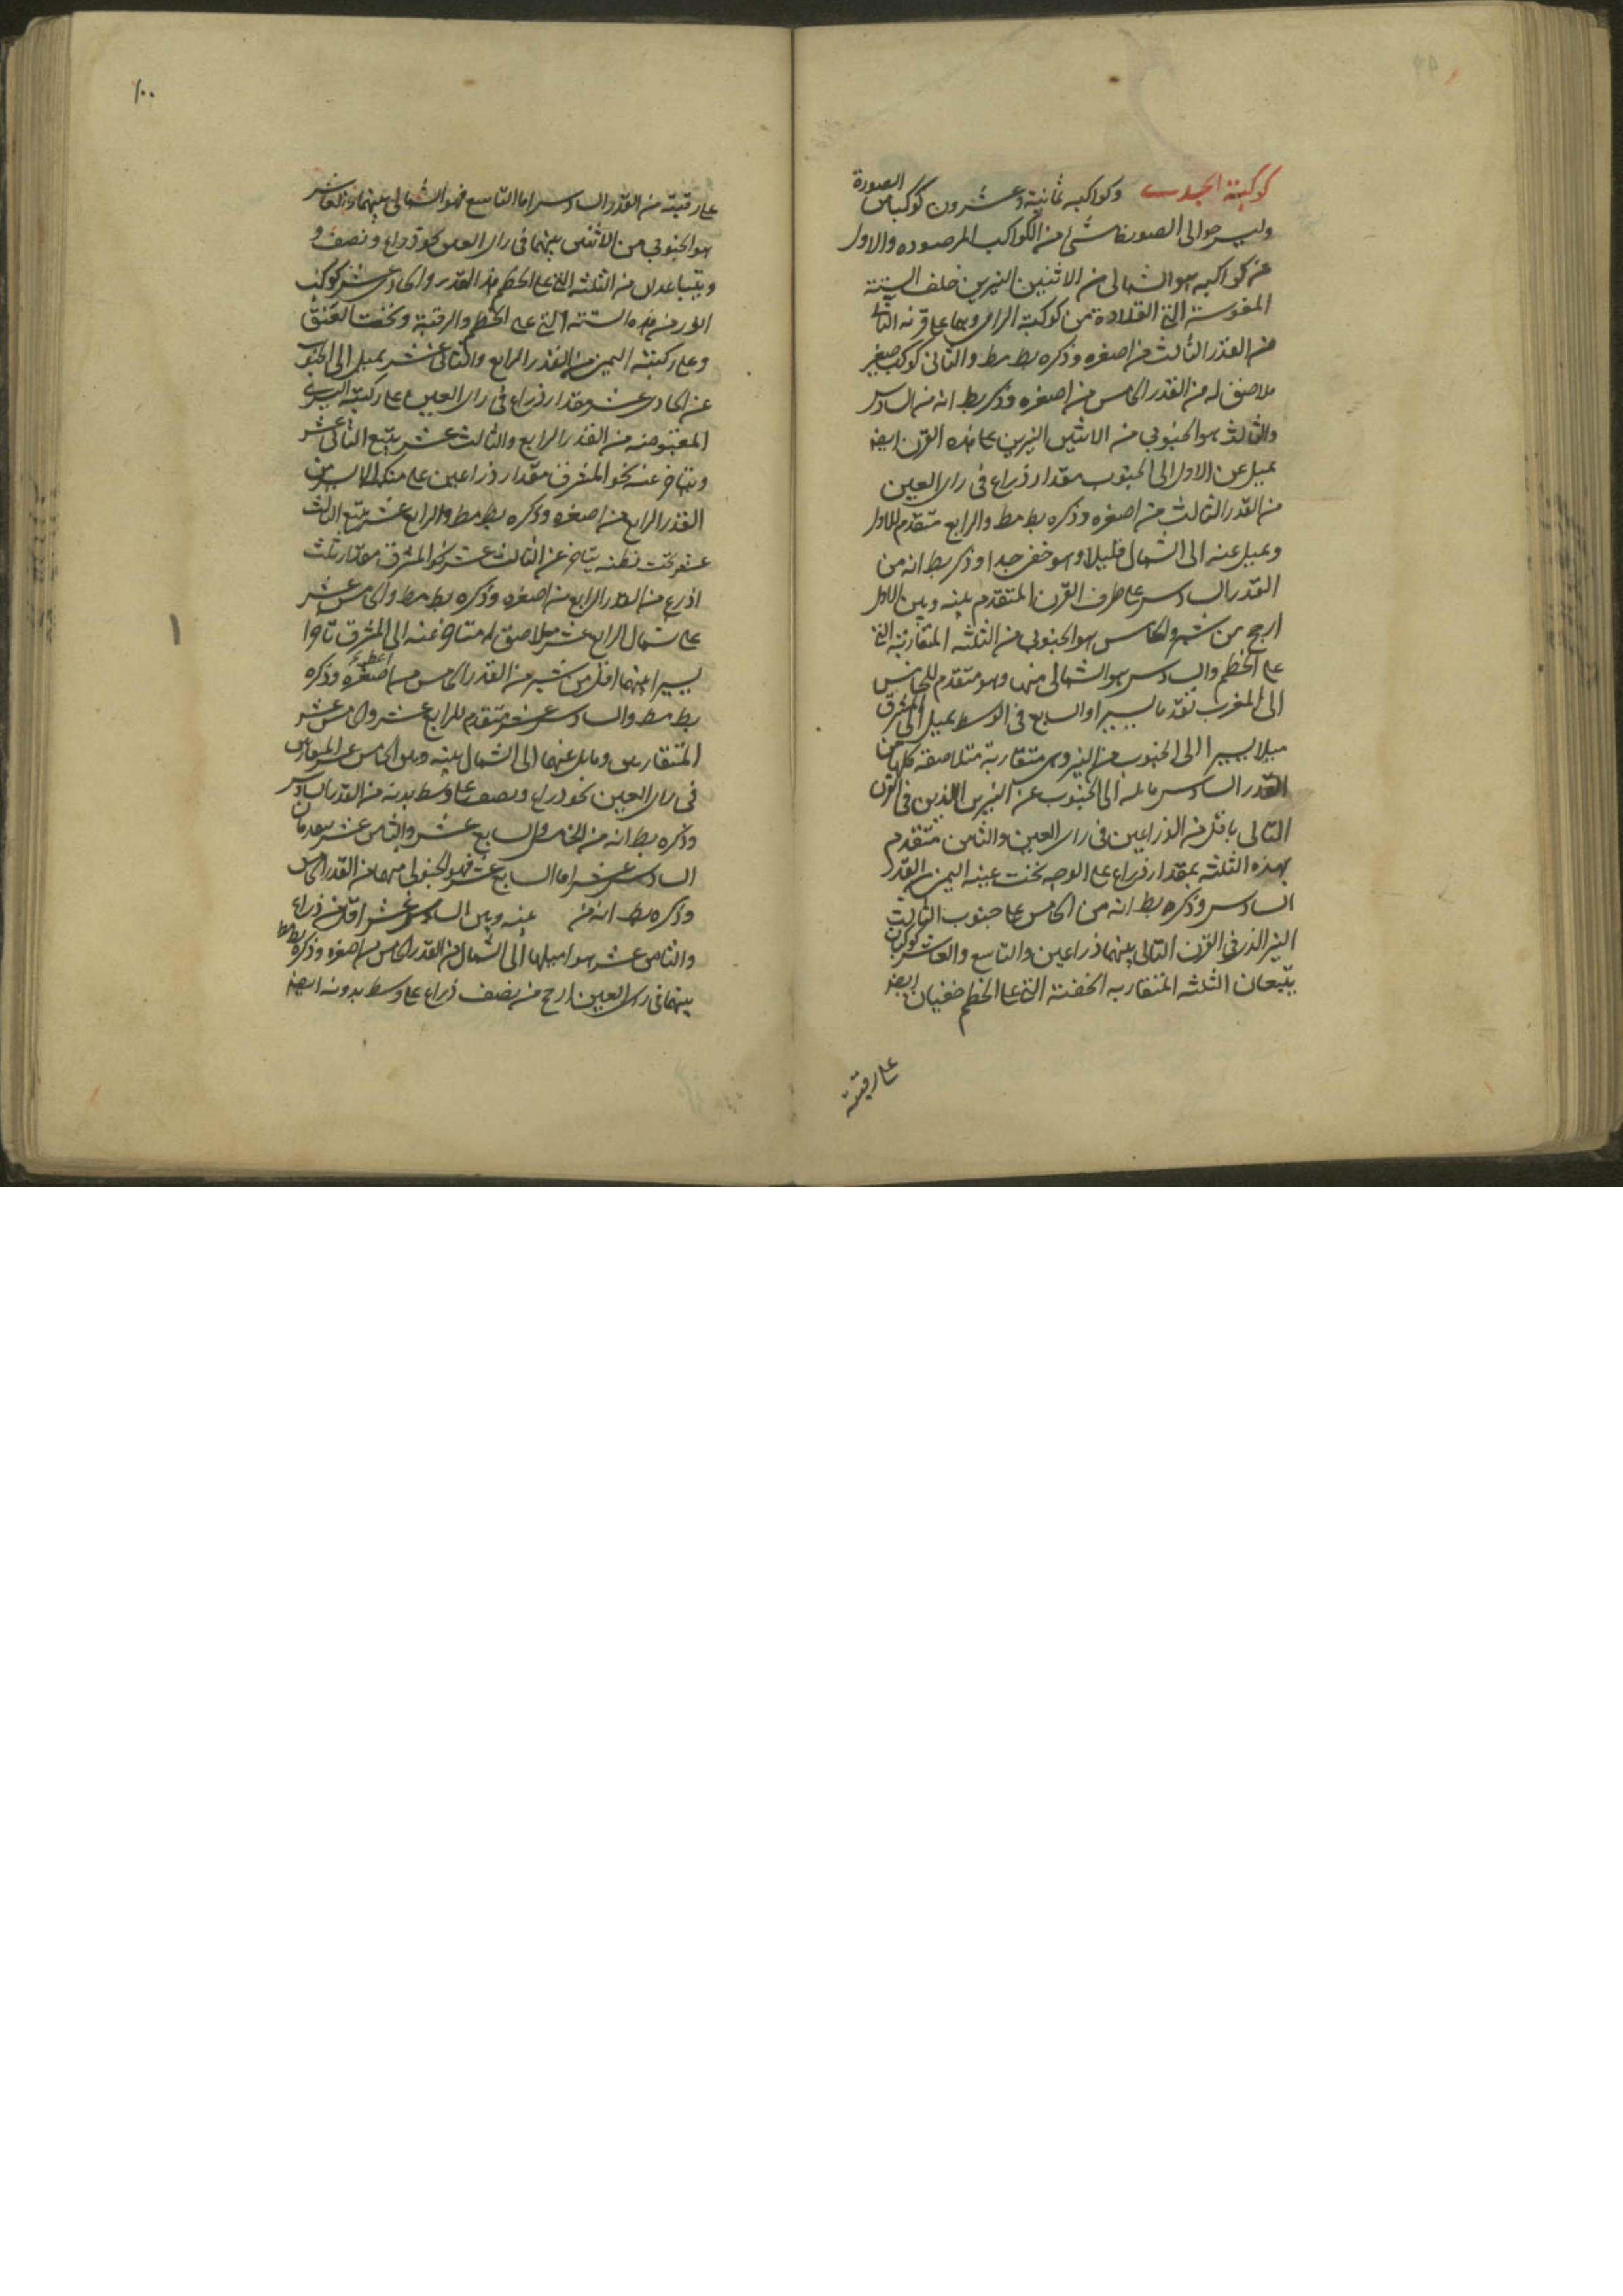 كوكبة الجدي وكواكبه ثمانية وعشرون كوكبا من الصورة
وليس حوالى الصورة شئ من الكواكب المرصوده والاول
من كواكبه هو الشمالى من الاثنين النيرين خلف الستة
المقوسة التى القلادة من كوكبة الرامى وهما على قرنه التالى
من القدر الثالث من اصغره وذكره بطلميوس والثانى كوكب صغير
ملاصق له من القدر الخامس من اصغره وذكر بط انه من السادس
والثالث هو الجنوبى من الاثنين النيرين على هذه القرن ايضا
يميل عن الاول الى الجنوب مقدار ذراع فى راى العين
من القدر الثالث من اصغره وذكره بط مط والرابع متقدم للاول
ويميل عنه الى الشمال قليلا وهو خفى جدا وذكر بط انه من
القدر السادس على طرف القرن المتقدم بينه وبين الاول
ارجح من شبر والخامس هو الجنوبى من الثلثه المتقاربة التى
على الخطم والسادس هو الشمالى منها وهو متقدم للخامس
الى المغرب تقدما يسيرا والسابع فى الوسط يميل الى المشرق
ميلا يسيرا الى الجنوب من النير وهى متقاربة متلاصقة كلها من
القدر السادس مايلة الى الجنوب عن النيرين اللذين فى القرن
التالى باقل من الذراعين فى راى العين والثامن متقدم
لهذه الثلثه بمقدار ذراع على الوجه تحت عينه اليمنى من القدر
السادس وذكره بط انه من الخامس على جنوب الثالث
النير الذى فى القرن التالى بينهما ذراعين والتاسع والعاشر كوكبان
يتبعان الثلثه المتقاربه الخفية التى على الخطم خفيان ايضا
على رقبته
١٠٠
على رقبته من القدر السادس اما التاسع فهو الشمالى بينهما والعاشر
هو الجنوبى من الاثنين بينهما فى راى العين نحو ذراع ونصف و
يتباعدان من الثلثه التى على الخطم هذا القدر والحادى عشر كوكب
انور من هذه الستة التى على الخطم والرقبة وتحت العنق
وعلى ركبته اليمنى من القدر الرابع والثانى عشر يميل الى الجنوب
عن الحادى عشر مقدار ذراع فى راى العين على ركبته اليسرى
المقبوضه من القدر الرابع والثالث عشر يتبع الثانى عشر
ويتاخر عنه نحو المشرق مقدار ذراعين على منكبه الايسر من
القدر الرابع من اصغره وذكره بط مط والرابع عشر يتبع الثالث
عشر تحت بطنه يتاخر عن الثالث عشر نحو المشرق مقدار ثلث
اذرع من القدر الرابع من اصغره وذكره بط مط والخامس عشر
على شمال الرابع عشر ملاصق له متاخر عنه الى المشرق تاخرا
يسيرا بينهما اقل من شبر من القدر الخامس من اصغره اعظمه وذكره
بط مط والسادس عشر متقدم للرابع عشر والخامس عشر
المتقاربين ومايل عنهما الى الشمال بينه وبين الخامس عشر المتقاربين
فى راى العين نحو ذراع ونصف على وسط بدنه من القدر السادس
وذكره بط انه من الخامس والسابع عشر والثامن عشر يتقدمان
السادس عشر اما السابع عشر فهو الجنوبى منهما من القدر الخامس
وذكره بط انه من عنه وبين السادس عشر اقل من ذراع
والثامن عشر هو اميلهما الى الشمال من القدر الخامس من اصغره وذكره بط مط
بينهما فى راى العين ارجح من نصف ذراع على وسط بدونه ايضا